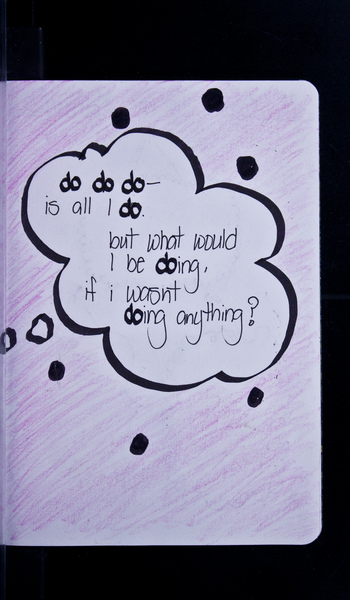 do do do—
is all I do.
but what would
I be doing,
if i wasnt
doing anything?